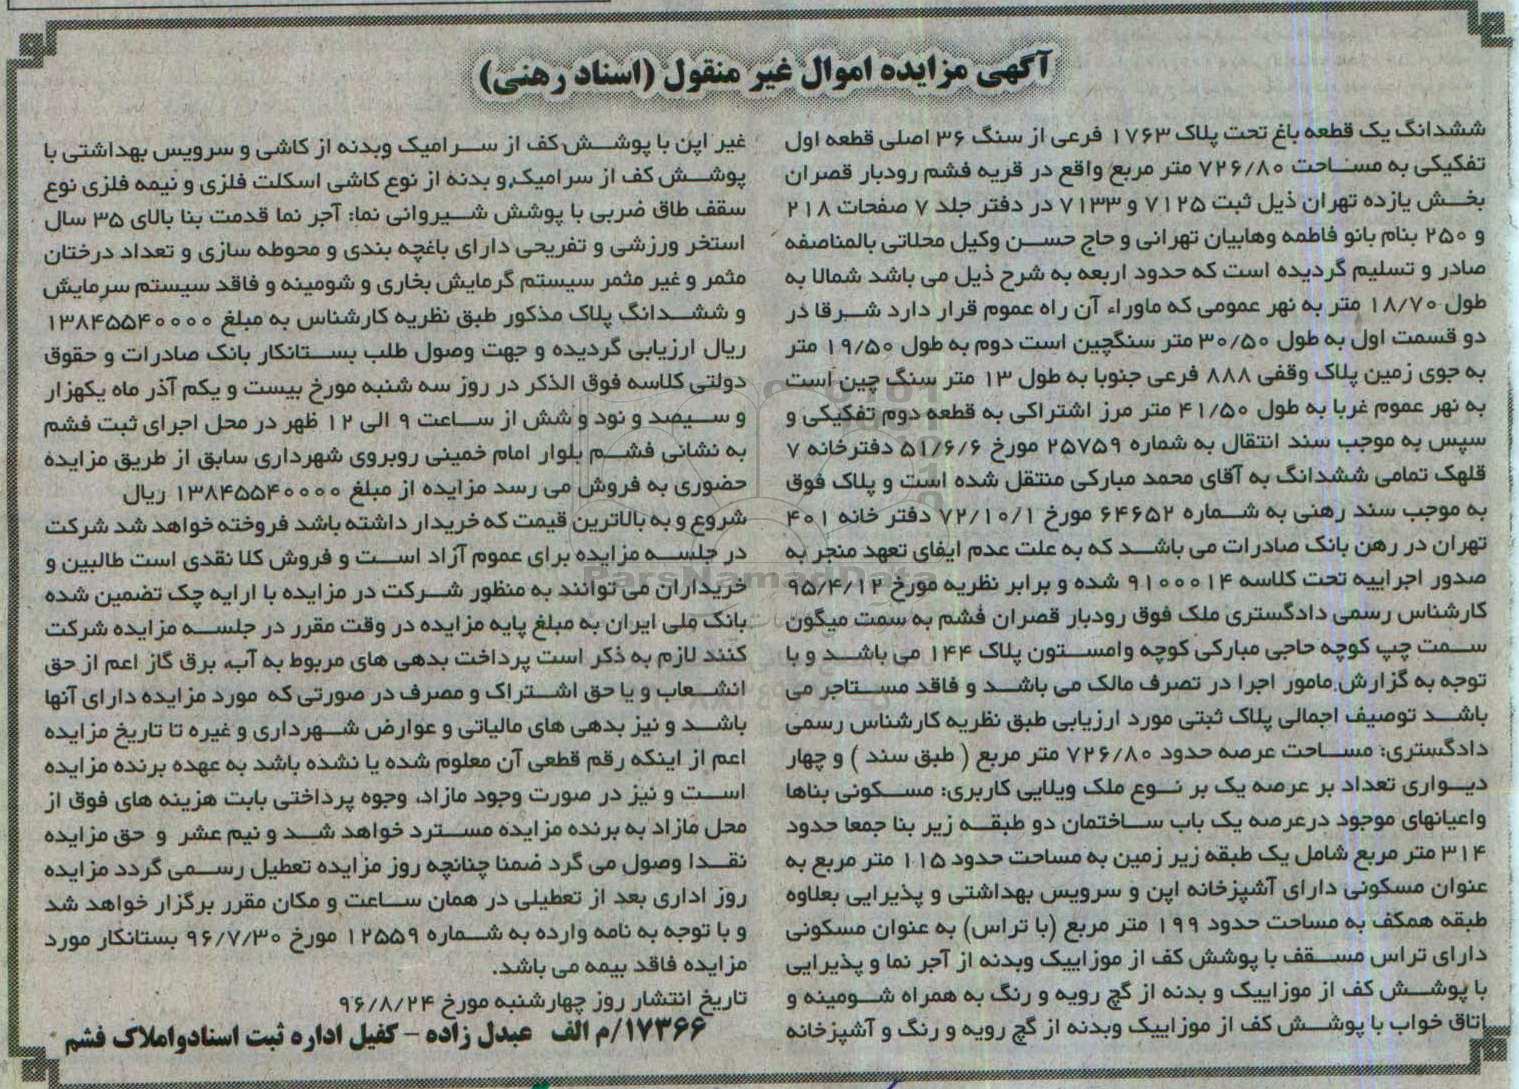 آگهی مزایده اموال غیر منقول (اسناد رهنی)
ششدانگ یک قطعه باغ تحت پلاک ۱۷۶۳ فرعی از سنگ ۳۶ اصلی قطعه اول
تفکیکی به مساحت ۷۲۶/۸۰ متر مربع واقع در قریه فشم رودبار قصران
بخش یازده تهران ذیل ثبت ۷۱۲۵ و ۷۱۳۳ در دفتر جلد ۷ صفحات ۲۱۸
و ۲۵۰ بنام بانو فاطمه وهابیان تهرانی و حاج حسن وکیل محلاتی بالمناصفه
صادر و تسلیم گردیده است که حدود اربعه به شرح ذیل می باشد شمالا به
طول ۱۸/۷۰ متر به نهر عمومی که ماوراء آن راه عموم قرار دارد شرقا در
دو قسمت اول به طول ۳۰/۵۰ متر سنگچین است دوم به طول ۱۹/۵۰ متر
به جوی زمین پلاک وقفی ۸۸۸ فرعی جنوبا به طول ۱۳ متر سنگ چین است
به نهر عموم غربا به طول ۴۱/۵۰ متر مرز اشتراکی به قطعه دوم تفکیکی و
سپس به موجب سند انتقال به شماره ۲۵۷۵۹ مورخ ۵۱/۶/۶ دفترخانه ۷
قلهک تمامی ششدانگ به آقای محمد مبارکی منتقل شده است و پلاک فوق
به موجب سند رهنی به شماره ۶۴۶۵۲ مورخ ۷۲/۱۰/۱ دفتر خانه ۴۰۱
تهران در رهن بانک صادرات می باشد که به علت عدم ایفای تعهد منجر به
صدور اجراییه تحت کلاسه ۹۱۰۰۰۱۴ شده و برابر نظریه مورخ ۹۵/۴/۱۲
کارشناس رسمی دادگستری ملک فوق رودبار قصران فشم به سمت میگون
سمت چپ کوچه حاجی مبارکی کوچه وامستون پلاک ۱۴۴ می باشد و با
توجه به گزارش مامور اجرا در تصرف مالک می باشد و فاقد مستاجر می
باشد توصیف اجمالی پلاک ثبتی مورد ارزیابی طبق نظریه کارشناس رسمی
دادگستری: مساحت عرصه حدود ۷۲۶/۸۰ متر مربع ( طبق سند ) و چهار
دیواری تعداد بر عرصه یک بر نوع ملک ویلایی کاربری: مسکونی بناها
واعیانهای موجود درعرصه یک باب ساختمان دو طبقه زیر بنا جمعا حدود
۳۱۴ متر مربع شامل یک طبقه زیر زمین به مساحت حدود ۱۱۵ متر مربع به
عنوان مسکونی دارای آشپزخانه اپن و سرویس بهداشتی و پذیرایی بعلاوه
طبقه همکف به مساحت حدود ۱۹۹ متر مربع (با تراس) به عنوان مسکونی
دارای تراس مسقف با پوشش کف از موزاییک وبدنه از آجر نما و پذیرایی
با پوشش کف از موزاییک و بدنه از گچ رویه و رنگ به همراه شومینه و
اتاق خواب با پوشش کف از موزاییک وبدنه از گچ رویه و رنگ و آشپزخانه
غیر اپن با پوشش کف از سرامیک وبدنه از کاشی و سرویس بهداشتی با
پوشش کف از سرامیک و بدنه از نوع کاشی اسکلت فلزی و نیمه فلزی نوع
سقف طاق ضربی با پوشش شیروانی نما: آجر نما قدمت بنا بالای ۳۵ سال
استخر ورزشی و تفریحی دارای باغچه بندی و محوطه سازی و تعداد درختان
مثمر و غیر مثمر سیستم گرمایش بخاری و شومینه و فاقد سیستم سرمایش
و ششدانگ پلاک مذکور طبق نظریه کارشناس به مبلغ ۱۳۸۴۵۵۴۰۰۰۰
ریال ارزیابی گردیده و جهت وصول طلب بستانکار بانک صادرات و حقوق
دولتی کلاسه فوق الذکر در روز سه شنبه مورخ بیست و یکم آذر ماه یکهزار
و سیصد و نود و شش از ساعت ۹ الی ۱۲ ظهر در محل اجرای ثبت فشم
به نشانی فشم بلوار امام خمینی روبروی شهرداری سابق از طریق مزایده
حضوری به فروش می رسد مزایده از مبلغ ۱۳۸۴۵۵۴۰۰۰۰ ریال
شروع و به بالاترین قیمت که خریدار داشته باشد فروخته خواهد شد شرکت
در جلسه مزایده برای عموم آزاد است و فروش کلا نقدی است طالبین و
خریداران می توانند به منظور شرکت در مزایده با ارایه چک تضمین شده
بانک ملی ایران به مبلغ پایه مزایده در وقت مقرر در جلسه مزایده شرکت
کنند لازم به ذکر است پرداخت بدهی های مربوط به آب، برق گاز اعم از حق
انشعاب و یا حق اشتراک و مصرف در صورتی که مورد مزایده دارای آنها
باشد و نیز بدهی های مالیاتی و عوارض شهرداری و غیره تا تاریخ مزایده
اعم از اینکه رقم قطعی آن معلوم شده یا نشده باشد به عهده برنده مزایده
است و نیز در صورت وجود مازاد، وجوه پرداختی بابت هزینه های فوق از
محل مازاد به برنده مزایده مسترد خواهد شد و نیم عشر و حق مزایده
نقدا وصول می گرد ضمنا چنانچه روز مزایده تعطیل رسمی گردد مزایده
روز اداری بعد از تعطیلی در همان ساعت و مکان مقرر برگزار خواهد شد
و با توجه به نامه وارده به شماره ۱۲۵۵۹ مورخ ۹۶/۷/۳۰ بستانکار مورد
مزایده فاقد بیمه می باشد.
تاریخ انتشار روز چهارشنبه مورخ ۹۶/۸/۲۴
۱۷۳۶۶/م الف عبدل زاده - کفیل اداره ثبت اسنادواملاک فشم
ParsNamadData